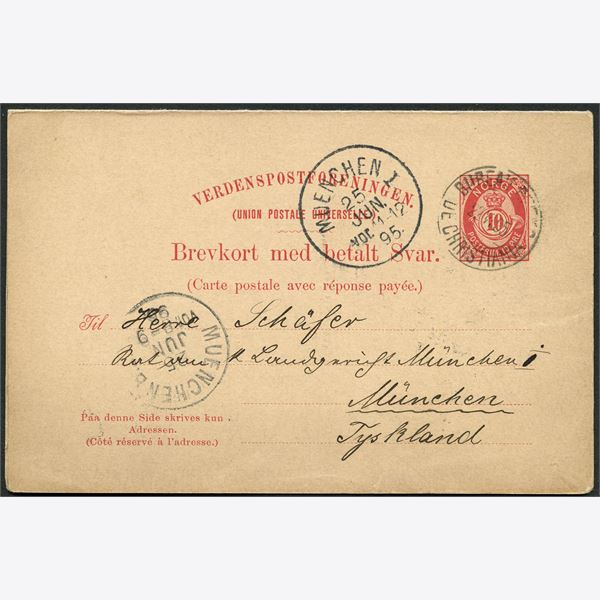 VERDENSPOSTFORENINGEN.
(UNION POSTALE UNIVERSELLE)
Brevkort med betalt Svar.
(Carte postale avec réponse payée.)
NORGE
10
MUENCHEN 1
25
JUN.
95.
Til Herre Schäfer
Rat am k Landgericht München i
München
Tyskland
MUENCHEN
JUN
Paa denne Side skrives kun
Adressen.
(Côté réservé à l'adresse.)